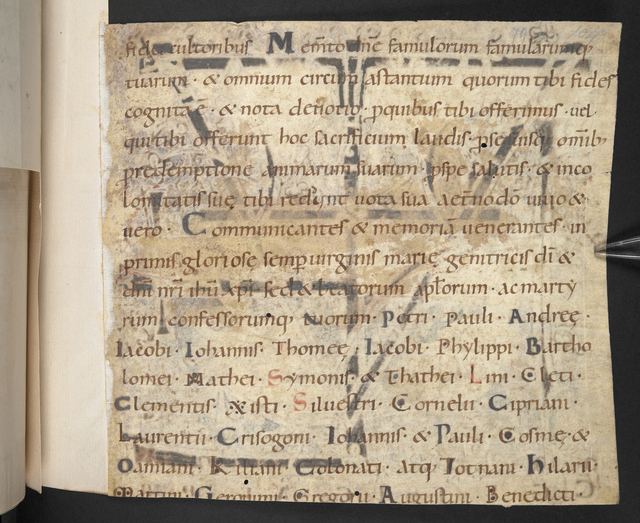 fidei cultoribus. Memento dñe famulorum famularumq;
tuarum · & omnium circum astantium quorum tibi fides
cognita ē · & nota deuotio · p quibus tibi offerimus · uel
qui tibi offerunt hoc sacrificium laudis · p se suisq; omīb;
p redemptione animarum suarum · p spe salutis · & inco
lomitatis suę tibi reddunt uota sua aet̄no dō uiuo &
uero · Communicantes & memoriā uenerantes · in
primis gloriosę semp uirginis marię genitricis dī &
dn̄i nr̄i ihū xp̄i · sed & beatorum apl̄orum · ac marty
rum confessorumq; tuorum · Petri · Pauli · Andreę ·
Iacobi · Iohannis · Thomę · Iacobi · Phylippi · Bartho
lomei · Mathei · Symonis · & Thathei · Lini · Cleti ·
Clementis · Xisti · Siluestri · Cornelii · Cipriani ·
Laurentii · Crisogoni · Iohannis · & Pauli · Cosmę · &
Damiani · Kiliani · Colonati · atq; Totnani · Hilarii ·
Martini · Geronimi · Gregorii · Augustini · Benedicti ·